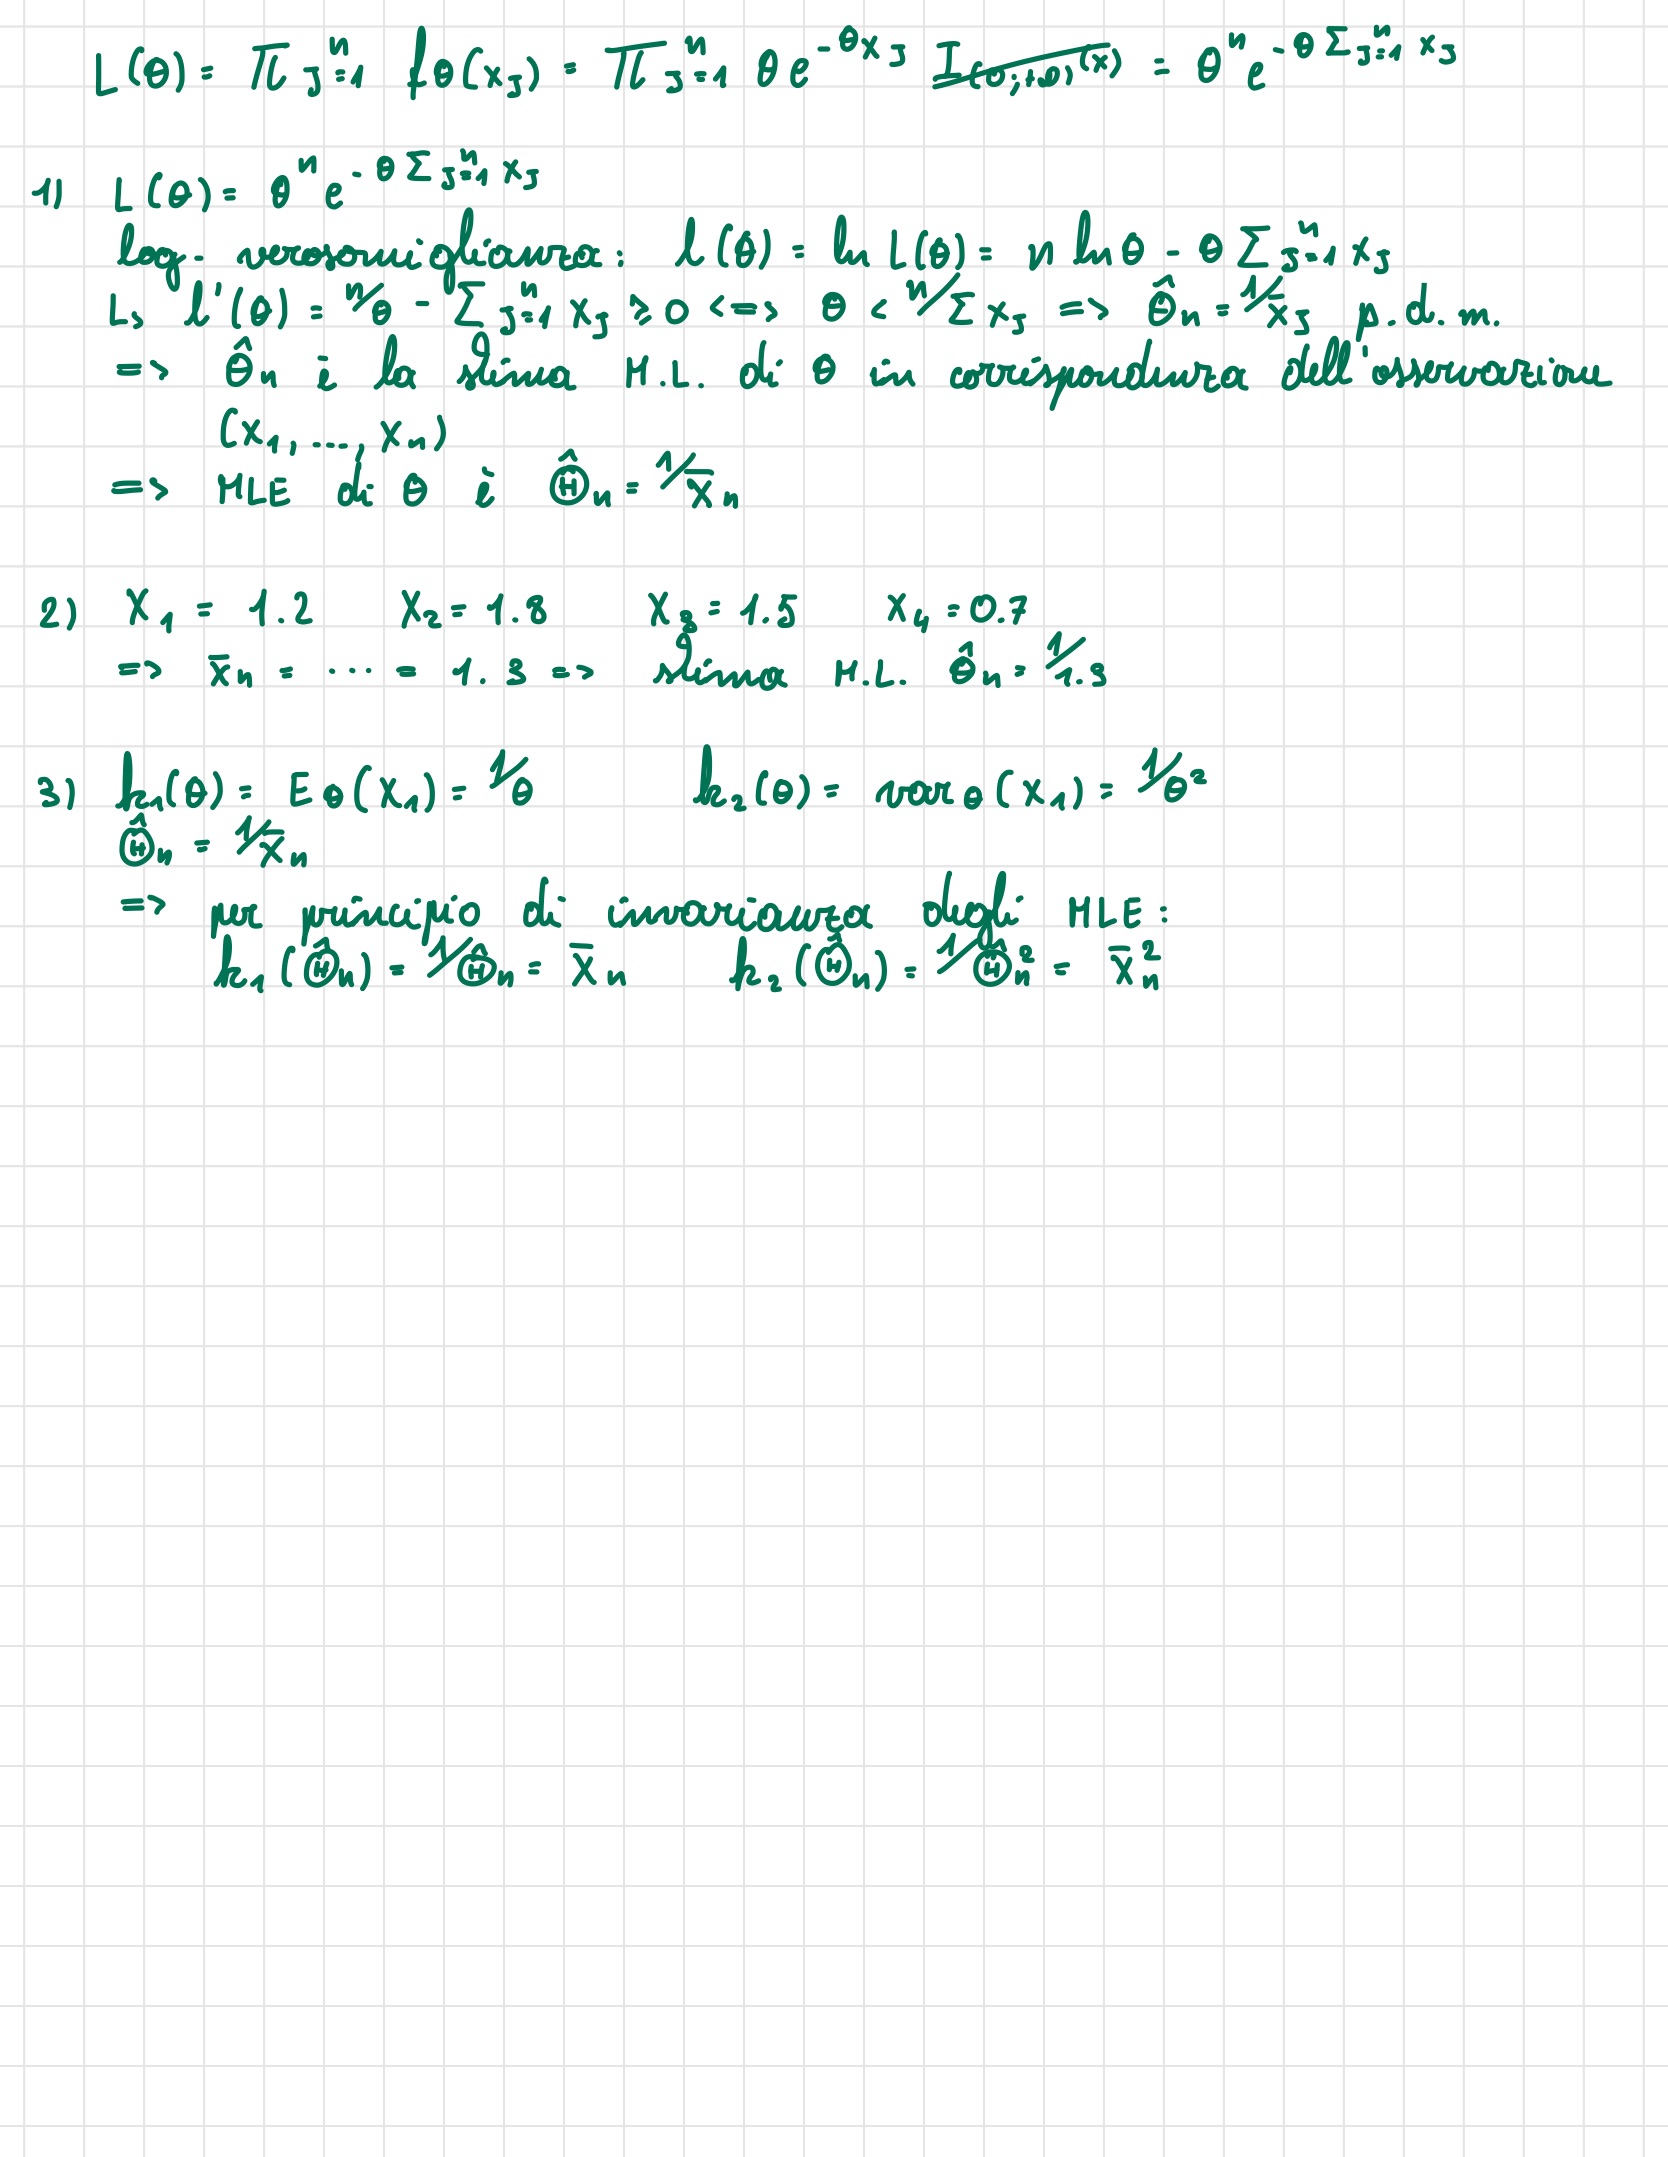 L(θ) = π j=1^n fθ(xj) = π j=1^n θe^-θxj I(0;+∞)(x) = θ^n e^-θ Σ j=1^n xj
1) L(θ) = θ^n e^-θ Σ j=1^n xj
log-verosomiglianza: l(θ) = ln L(θ) = n ln θ - θ Σ j=1^n xj
L> l'(θ) = n/θ - Σ j=1^n xj ≥ 0 <=> θ < n/Σ xj => θ̂n = 1/x̄j p.d.m.
=> θ̂n è la stima M.L. di θ in corrispondenza dell'osservazione
(x1, ..., xn)
=> MLE di θ è Θ̂n = 1/X̄n
2) X1 = 1.2 X2 = 1.8 X3 = 1.5 X4 = 0.7
=> x̄n = ... = 1.3 => stima M.L. θ̂n = 1/1.3
3) k1(θ) = Eθ(X1) = 1/θ k2(θ) = varθ(X1) = 1/θ²
Θ̂n = 1/X̄n
=> per principio di invarianza degli MLE:
k1(Θ̂n) = 1/Θ̂n = X̄n k2(Θ̂n) = 1/Θ̂n² = X̄n²